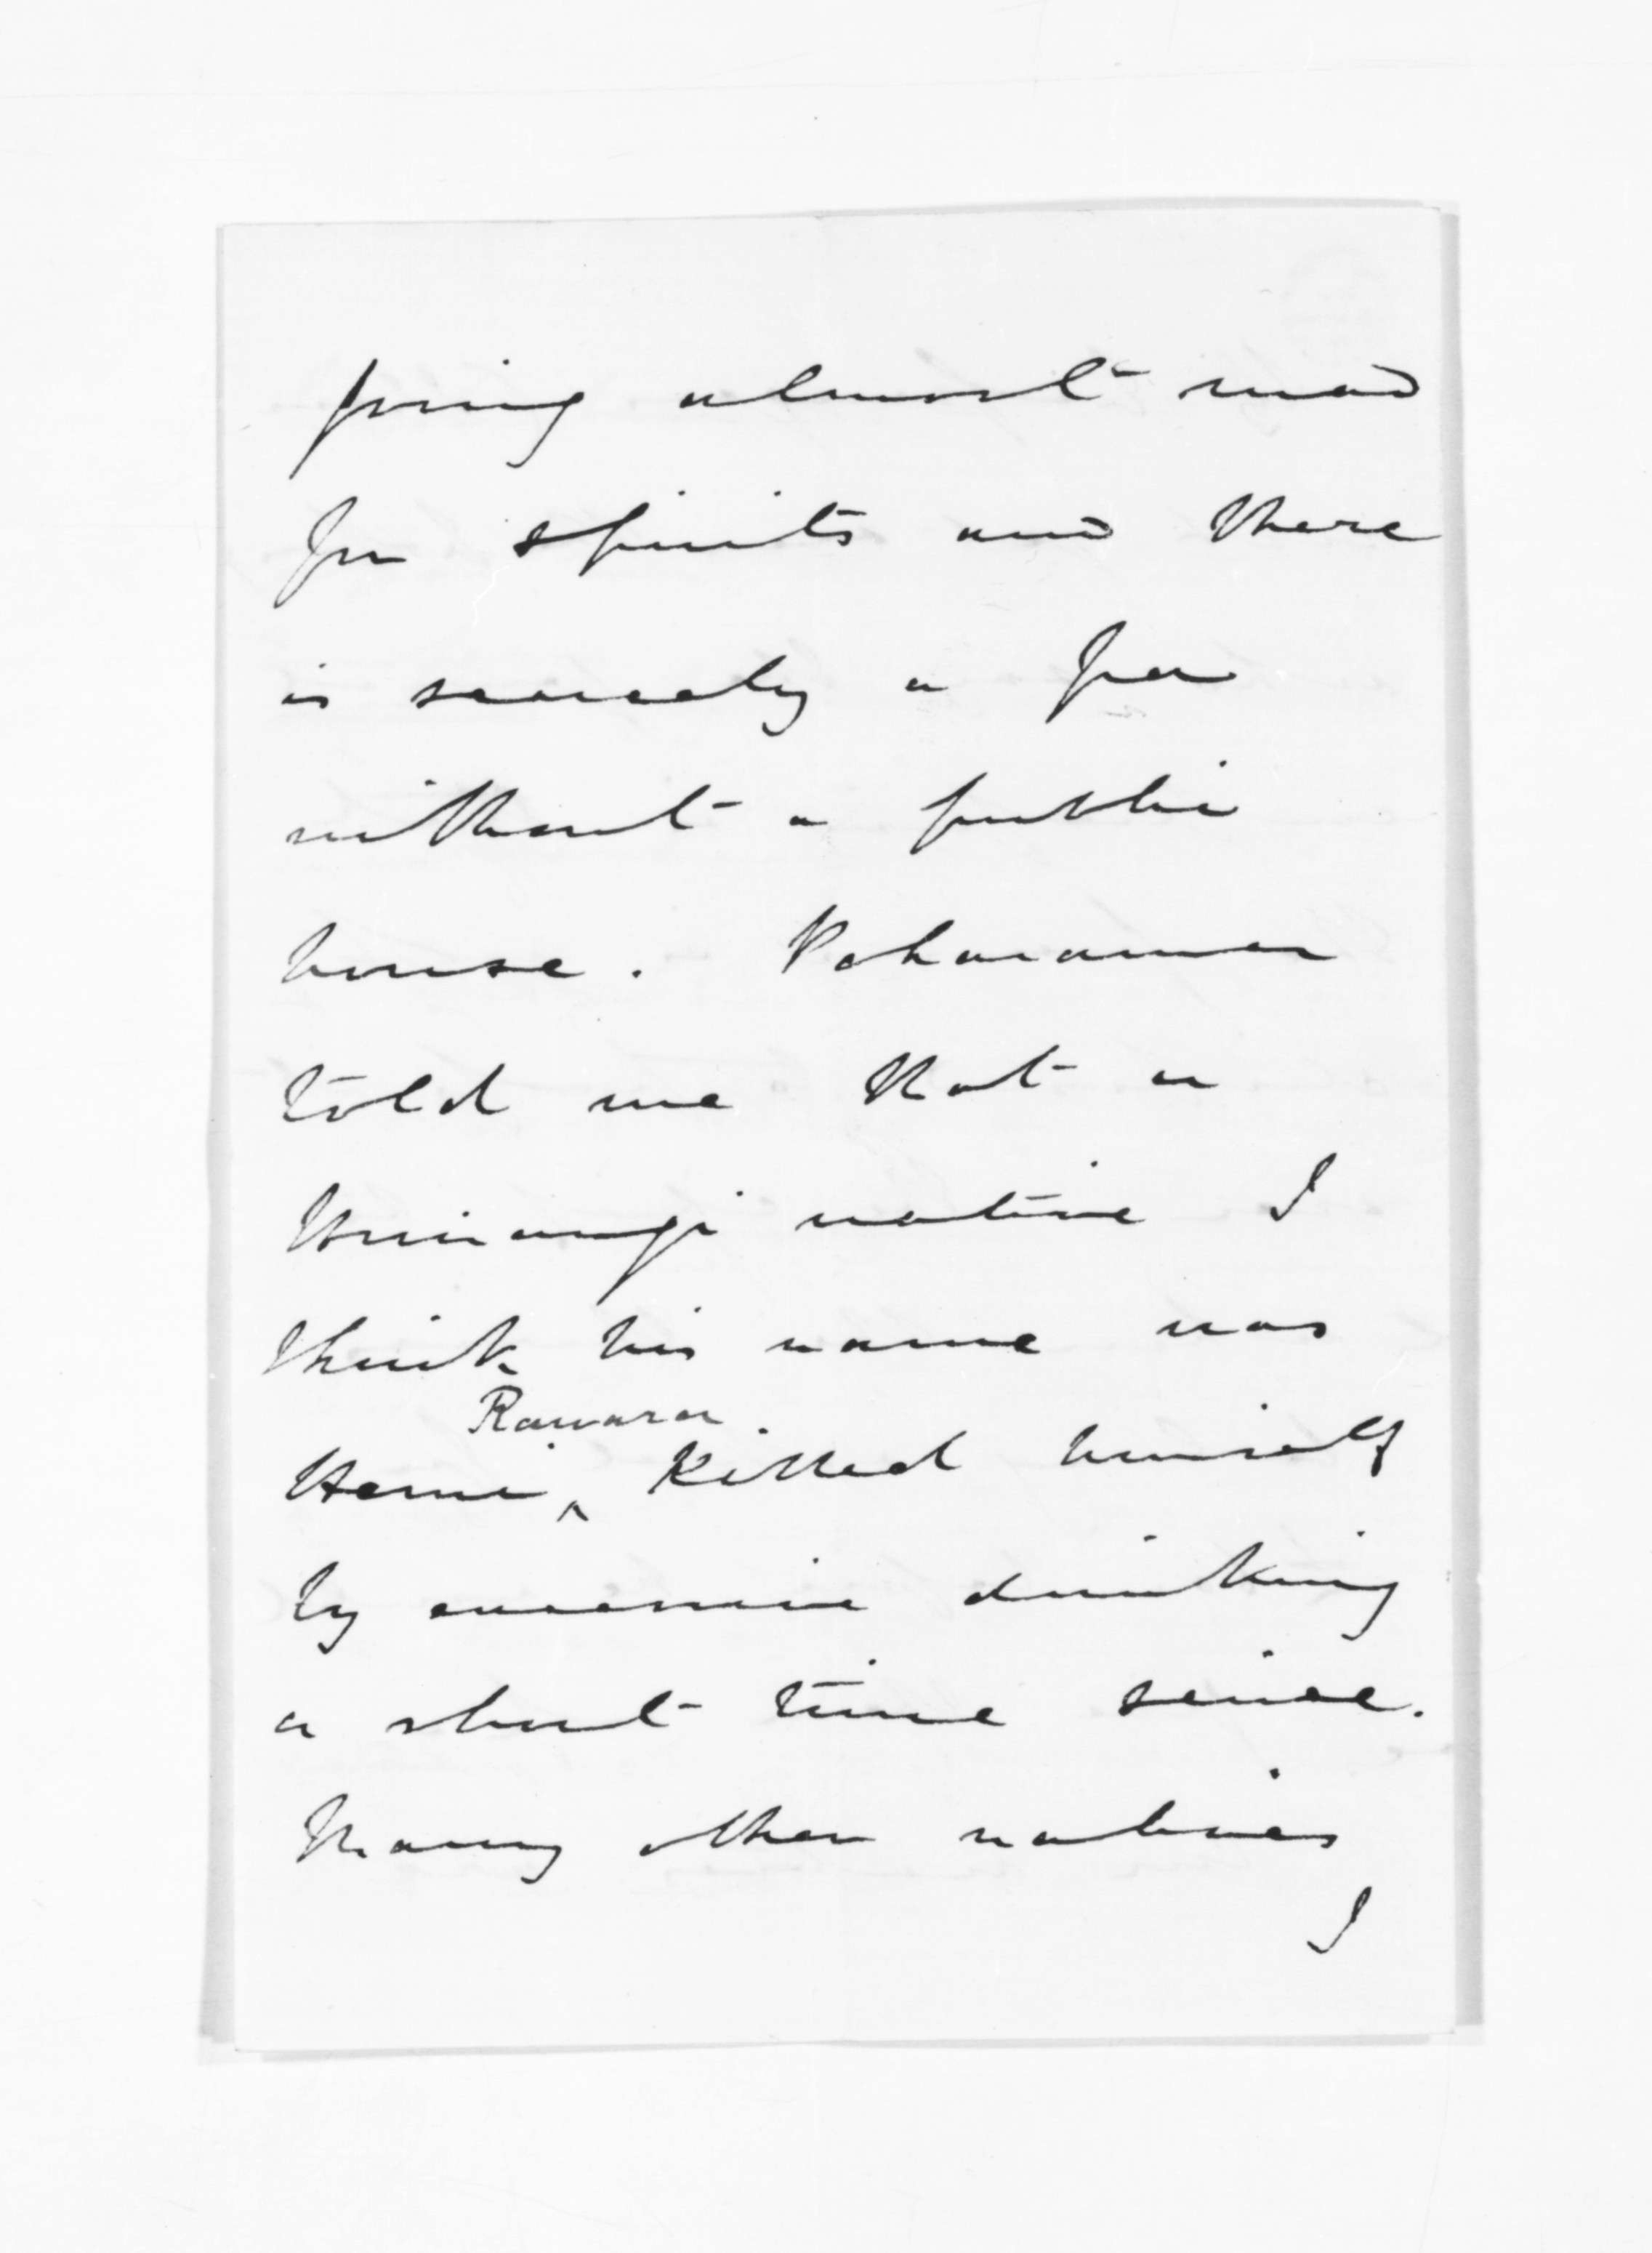 going almost mad
for spirits and there
is scarcely a pa
without a public
house.
told me that a
native I
think his name was
Hemi ^ Rawara killed himself
by excessive drinking
a short time since.
Many other natives
I